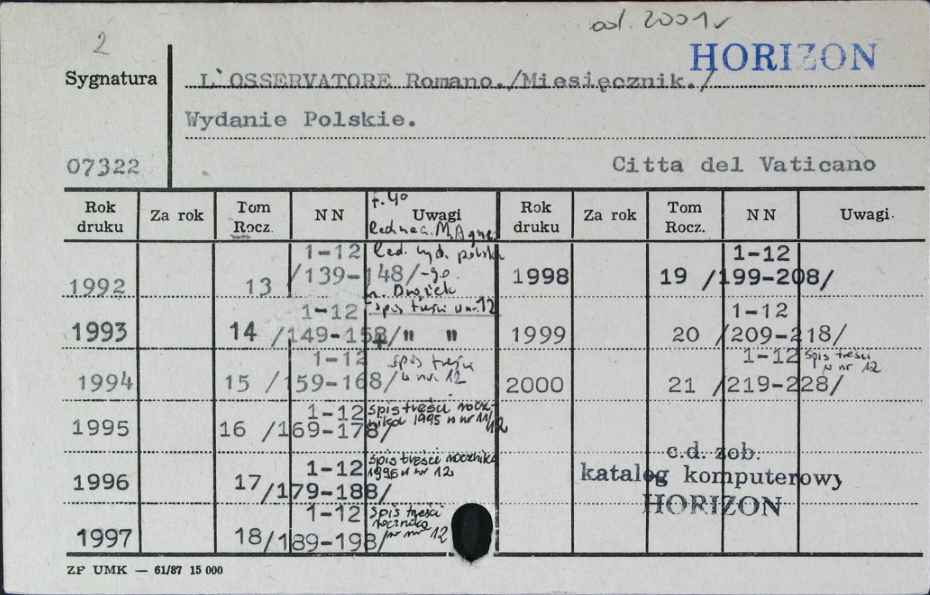 2
od. 2001
HORIZON
Sygnatura
L'OSSERVATORE Romano./Miesięcznik./
Wydanie Polskie.
07322
Citta del Vaticano
Rok druku Za rok Tom Rocz. NN Uwagi Rok druku Za rok Tom Rocz. NN Uwagi
1992 13 1-12 /139-148/ Red. wyd. polsk
1993 14 1-12 /149-158/ " " spis treści w nr. 12
1994 15 1-12 /159-168/ spis treści w nr. 12
1995 16 1-12 /169-178/ spis treści 1995 w nr 11/12
1996 17 1-12 /179-188/ spis treści rocznika 1996 w nr 12
1997 18 1-12 /189-198/ spis treści rocznika 12
1998 19 1-12 /199-208/
1999 20 1-12 /209-218/
2000 21 1-12 /219-228/ spis treści w nr 12
c.d. zob.
katalog komputerowy
HORIZON
ZP UMK — 61/87 15 000